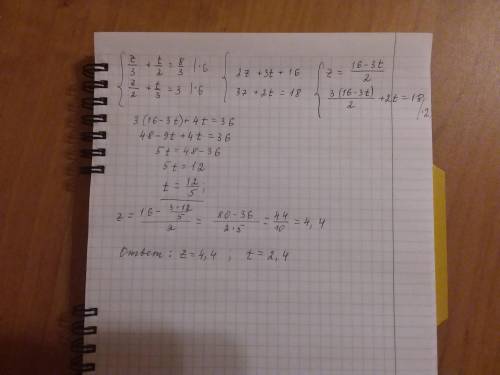 { z/3 + t/2 = 8/3 |·6 { 2z + 3t + 16 { z = (16-3t)/2
z/2 + t/3 = 3 |·6 3z + 2t = 18 3(16-3t)/2 + 2t = 18 |·2
3(16-3t)+4t=36
48-9t+4t=36
5t=48-36
5t=12
t = 12/5;
z = (16 - 3·12/5)/2 = (80-36)/(2·5) = 44/10 = 4,4
Ответ: z=4,4 ; t=2,4